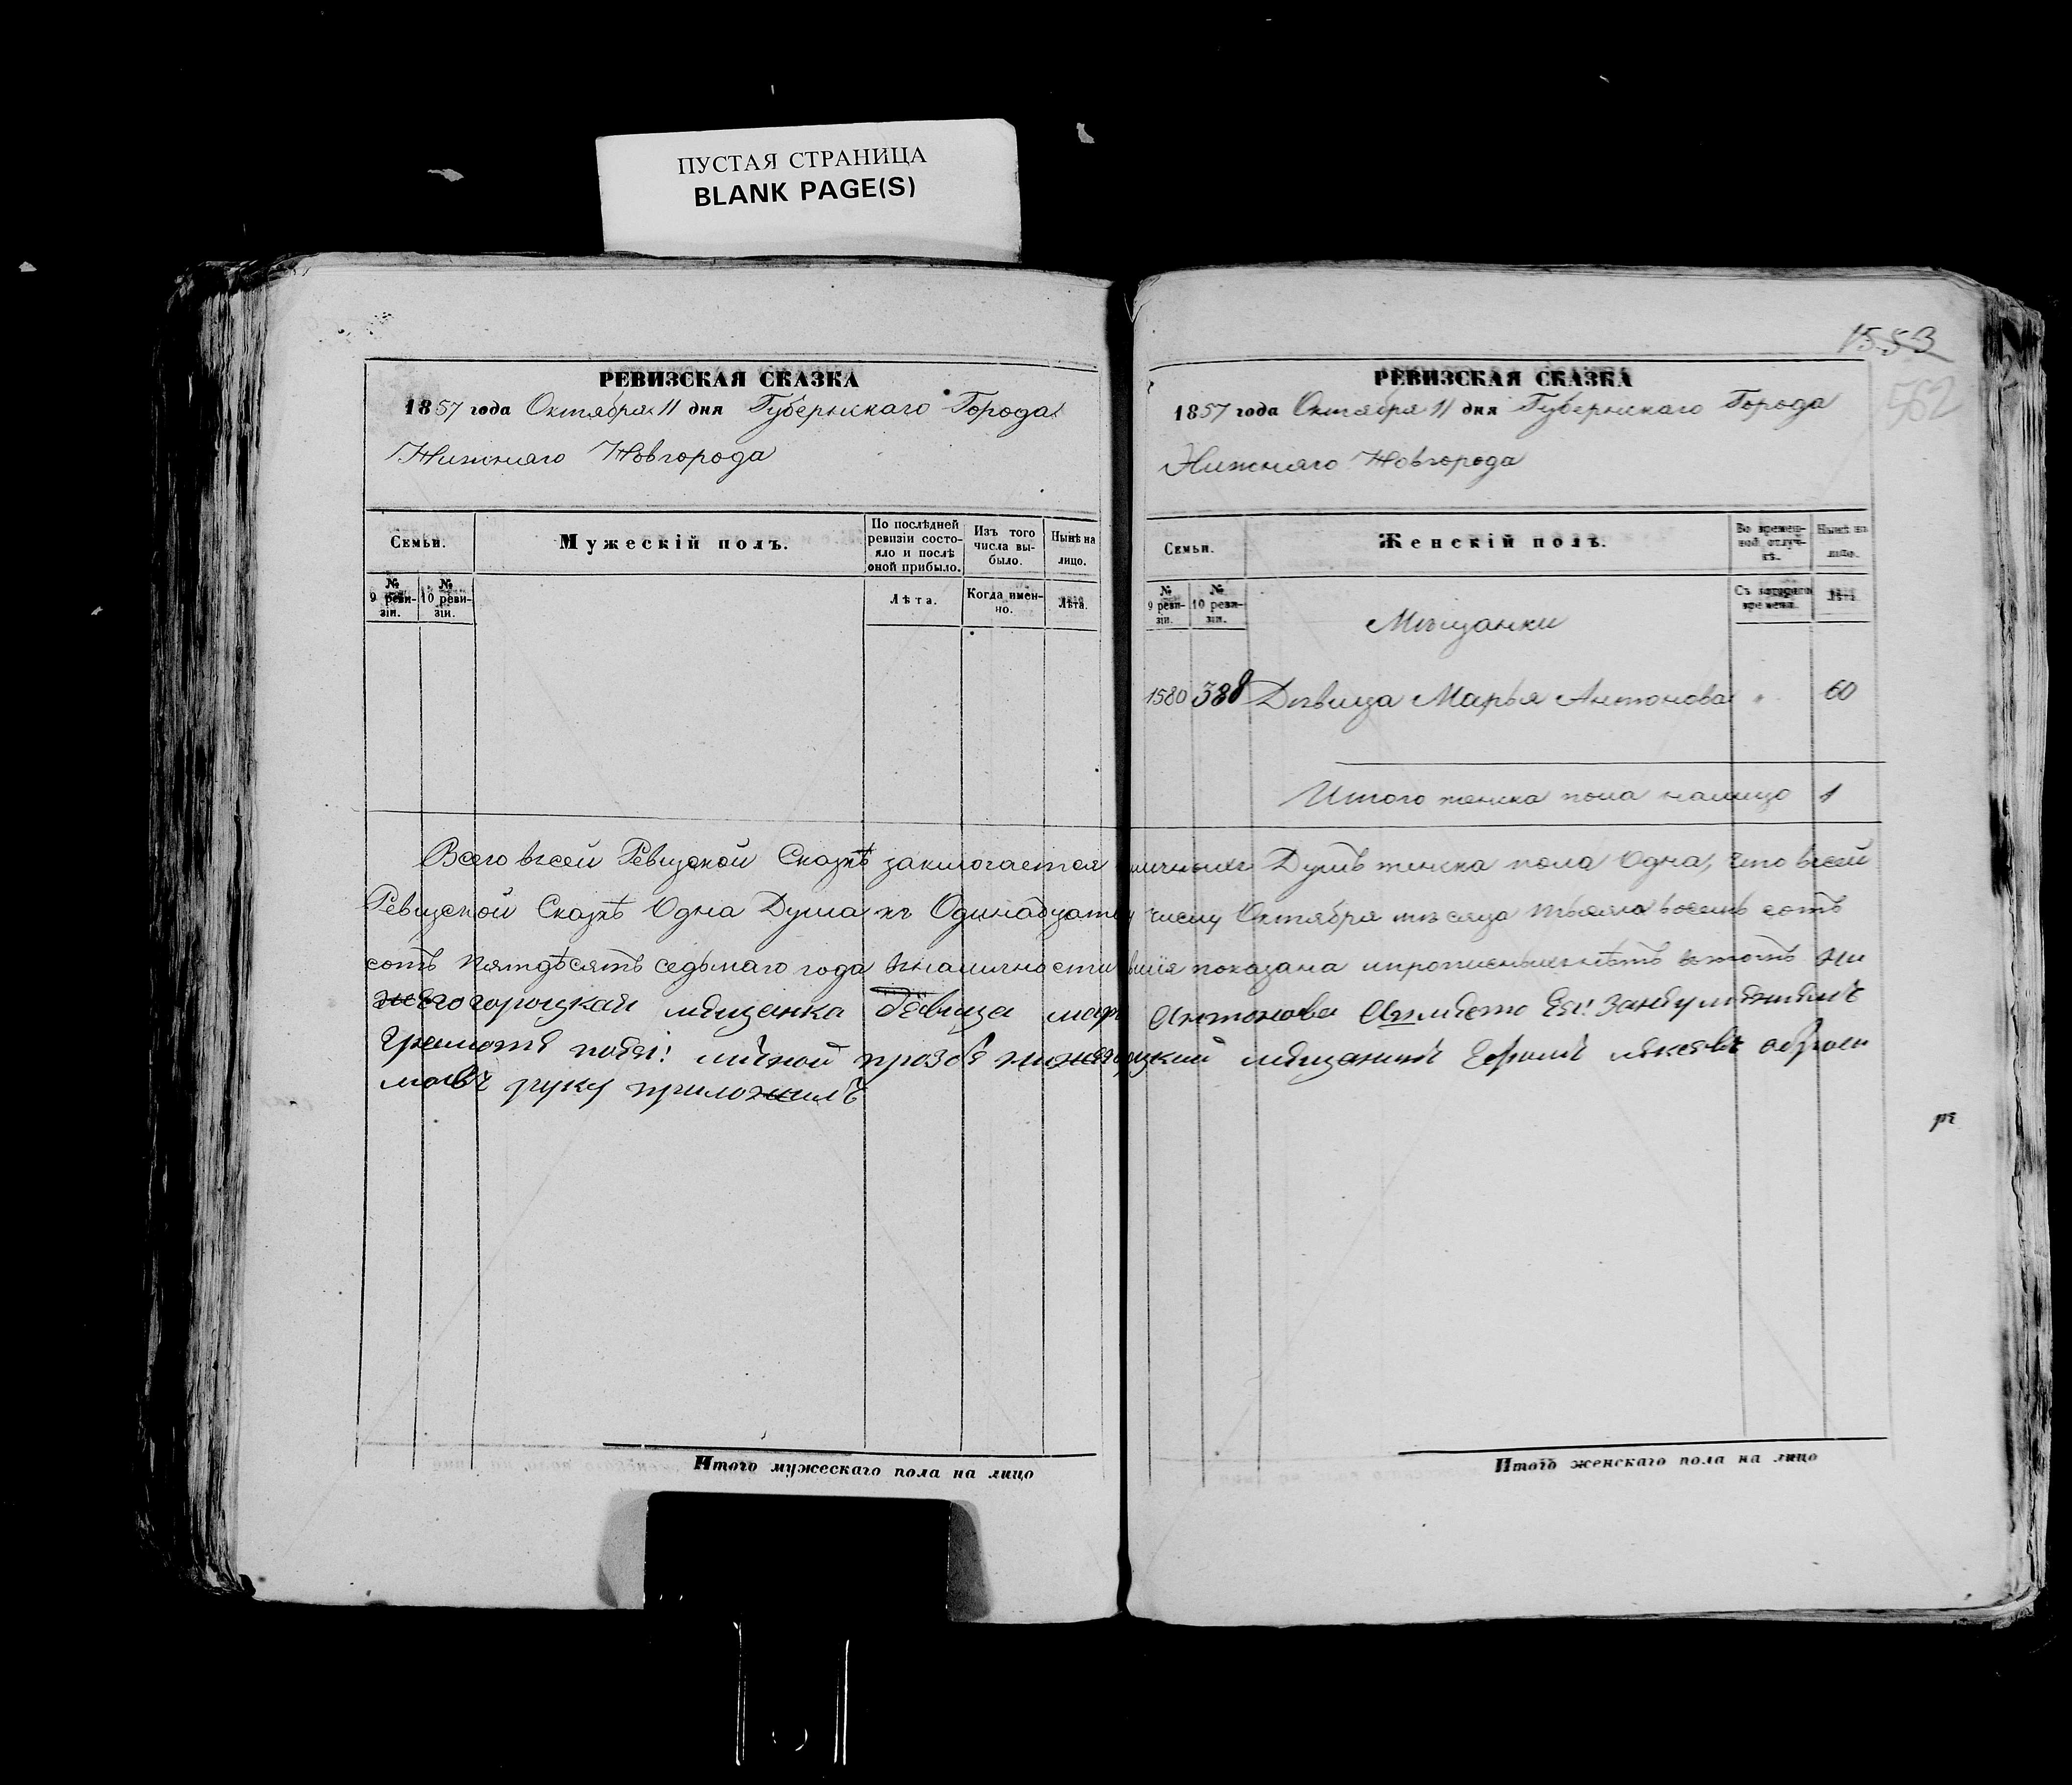 ПУСТАЯ СТРАНИЦА
BLANK PAGE(S)
РЕВИЗСКАЯ СКАЗКА
1857 года Октября 11 дня Губернскаго Города
Нижняго Новгорода
Семьи.
Мужескій полъ.
По послѣдней ревизіи состояло и послѣ оной прибыло.
Изъ того числа выбыло.
Нынѣ на лицо.
№ 9 ревизіи.
№ 10 ревизіи.
Лѣта.
Когда именно.
Лѣта.
1553
562
РЕВИЗСКАЯ СКАЗКА
1857 года Октября 11 дня Губернскаго Города
Нижняго Новгорода
Семьи.
Женскій полъ.
Во временной отлучкѣ.
Нынѣ на лицо.
№ 9 ревизіи.
№ 10 ревизіи.
Съ котораго времени.
Лѣта.
Мѣщанки
1580 388 Дѣвица Марья Антонова " 60
Итого женска пола налицо 1
Всего в сей Ревизской Сказкѣ заключается личныхъ Душъ женска пола Одна, что в сей
Ревизской Сказкѣ Одна Душа къ Одинадцатому числу Октября мѣсяца тысяча восемь сотъ
сотъ пятдѣсятъ седьмаго года в наличности показана и прописныхъ нѣтъ в томъ Ни
жегогороцкая мещанка девица мар Антонова вместо Ея
Грамоте по Ея личной прозбе мещанинъ Ефимъ
руку приложилъ
Итого мужескаго пола на лицо
Итого женскаго пола на лицо